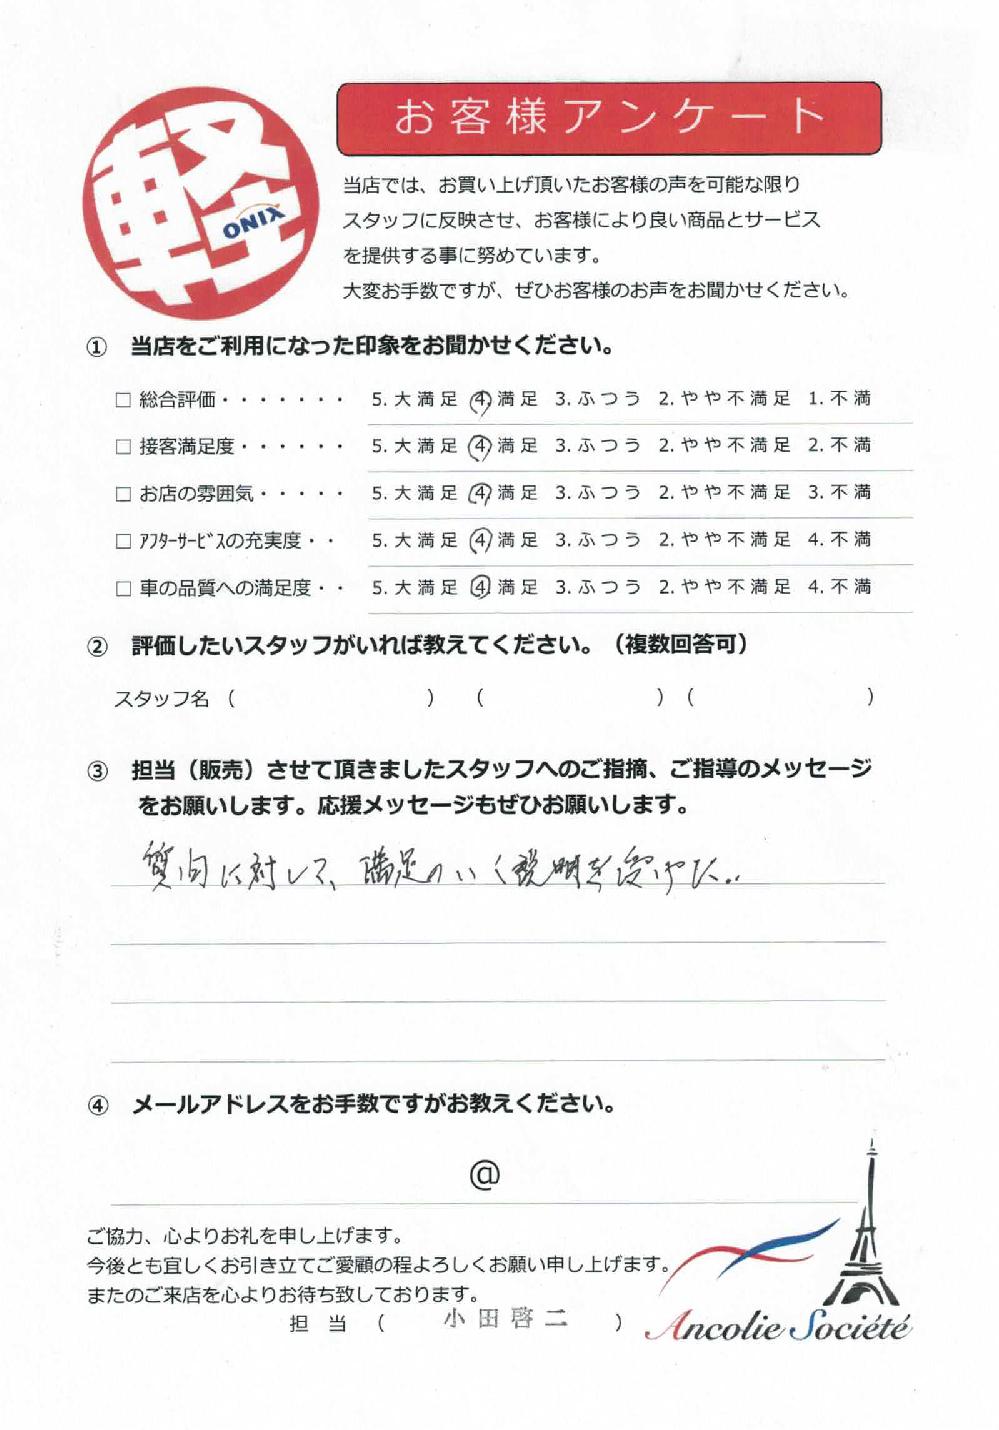 お客様アンケート
軽
ONIX
当店では、お買い上げ頂いたお客様の声を可能な限り
スタッフに反映させ、お客様により良い商品とサービス
を提供する事に努めています。
大変お手数ですが、ぜひお客様のお声をお聞かせください。
① 当店をご利用になった印象をお聞かせください。
□ 総合評価・・・・・・・ 5.大満足 4.満足 3.ふつう 2.やや不満足 1.不満
□ 接客満足度・・・・・・ 5.大満足 4.満足 3.ふつう 2.やや不満足 2.不満
□ お店の雰囲気・・・・・ 5.大満足 4.満足 3.ふつう 2.やや不満足 3.不満
□ ｱﾌﾀｰｻｰﾋﾞｽの充実度・・ 5.大満足 4.満足 3.ふつう 2.やや不満足 4.不満
□ 車の品質への満足度・・ 5.大満足 4.満足 3.ふつう 2.やや不満足 4.不満
② 評価したいスタッフがいれば教えてください。（複数回答可）
スタッフ名（ ） （ ）（ ）
③ 担当（販売）させて頂きましたスタッフへのご指摘、ご指導のメッセージ
をお願いします。応援メッセージもぜひお願いします。
質問に対して、満足のいく説明を受けた。
④ メールアドレスをお手数ですがお教えください。
@
ご協力、心よりお礼を申し上げます。
今後とも宜しくお引き立てご愛顧の程よろしくお願い申し上げます。
またのご来店を心よりお待ち致しております。
担 当 （ 小田啓二 ）
Ancolie Société